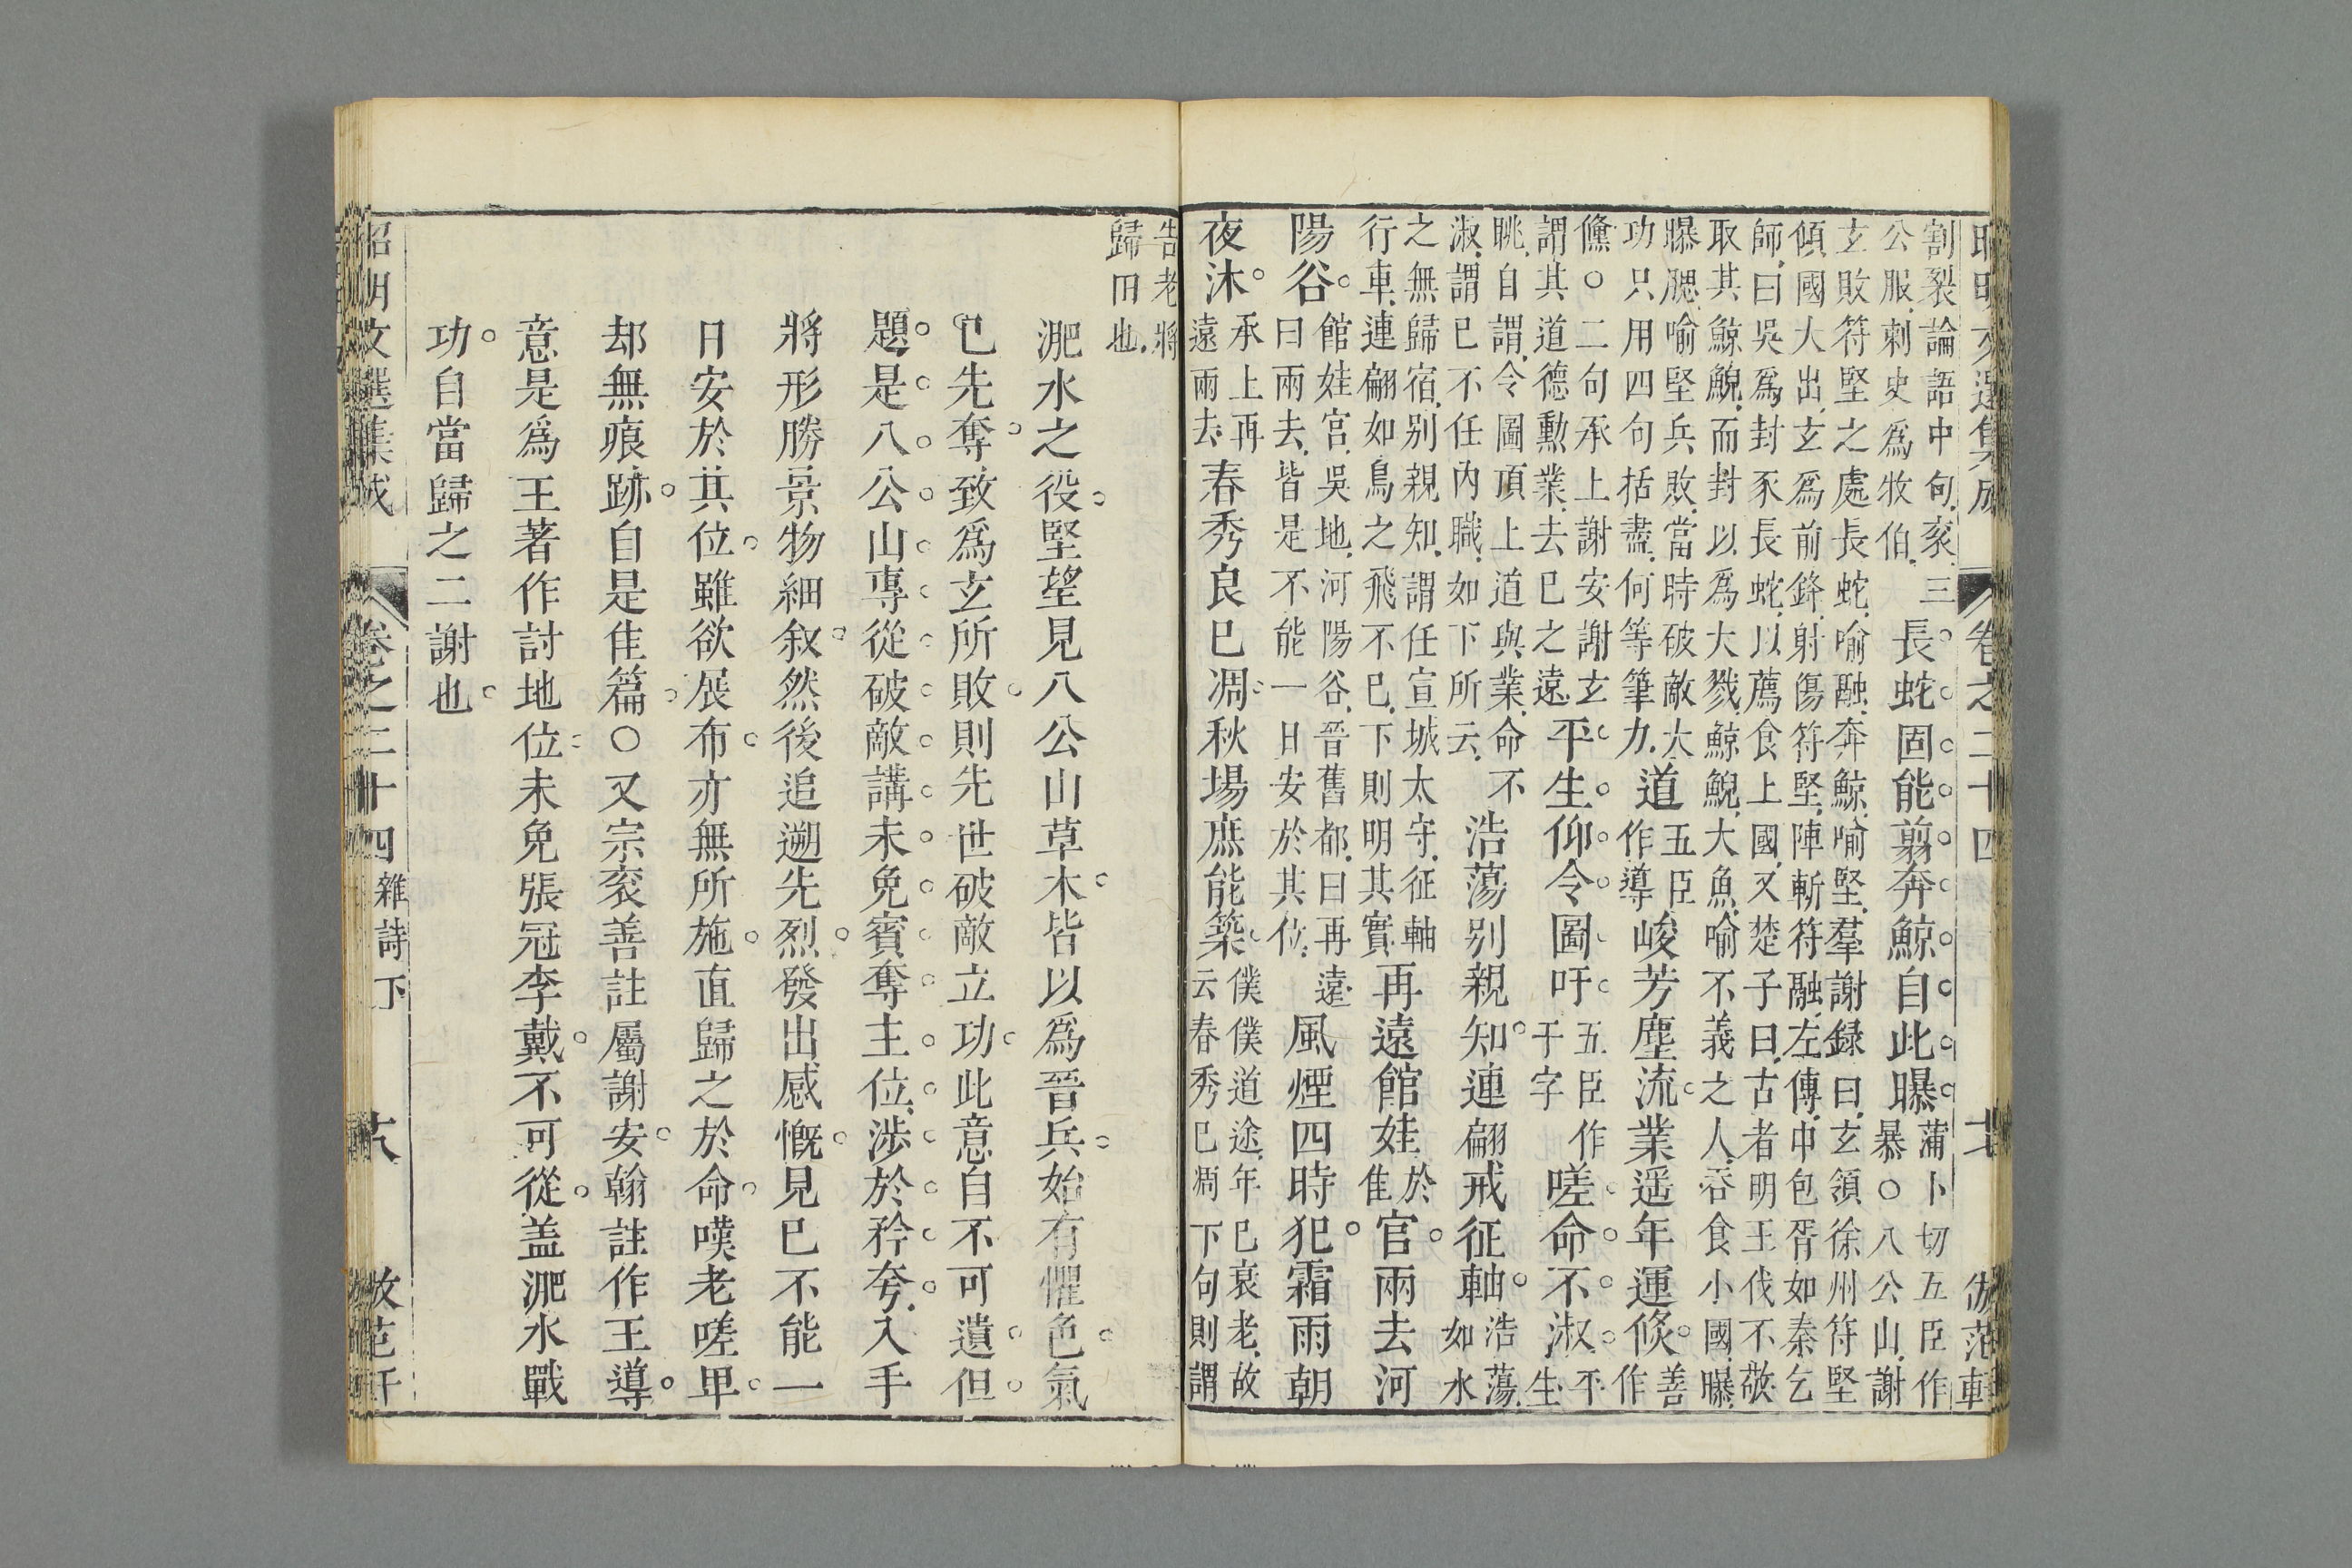 昭明文選集成　卷之二十四　倣范軒
割裂論語中句衮三
公服刺史爲牧伯
長蛇固能翦奔鯨自此曝
蒲卜切五臣作
暴○八公山謝
玄敗符堅之處長蛇喻融奔鯨喻堅羣謝録曰玄領徐州符堅
傾國大出玄爲前鋒射傷符堅陣斬符融左傳申包胥如秦乞
師曰吳爲封豕長蛇以薦食上國又楚子曰古者明王伐不敬
取其鯨鯢而封以爲大戮鯨鯢大魚喻不義之人吞食小國曝
曝腮喻堅兵敗當時破敵大
功只用四句括盡何等筆力
道
五臣
作導
峻芳塵流業遥年運倐
善
作
儵○二句承上謝安謝玄
謂其道德勳業去巳之遠
平生仰令圖吁
五臣作
于字
嗟命不淑
平
生
眺自謂令圖頂上道與業命不
淑謂巳不任内職如下所云
浩蕩别親知連翩戒征軸
浩蕩
如水
之無歸宿别親知謂任宣城太守征軸
行車連翩如鳥之飛不巳下則明其實
再遠館娃
於
隹
官兩去河
陽谷
館娃宫吳地河陽谷晉舊都曰再遠
曰兩去皆是不能一日安於其位
風煙四時犯霜雨朝
夜沐
承上再
遠兩去
春秀良巳凋秋場庶能築
僕僕道途年巳衰老故
云春秀巳凋下句則謂
告老將
歸田也
淝水之役堅望見八公山草木皆以爲晉兵始有懼色氣
巳先奪致爲玄所敗則先世破敵立功此意自不可遺但
題是八公山專從破敵講未免賓奪主位涉於矜夸入手
將形勝景物細叙然後追遡先烈發出感慨見巳不能一
日安於其位雖欲展布亦無所施直歸之於命嘆老嗟卑
却無痕跡自是佳篇○又宗衮善註屬謝安翰註作王導
意是爲王著作討地位未免張冠李戴不可從盖淝水戰
功自當歸之二謝也
昭明文選集成　卷之二十四　雜詩下　六　倣范軒